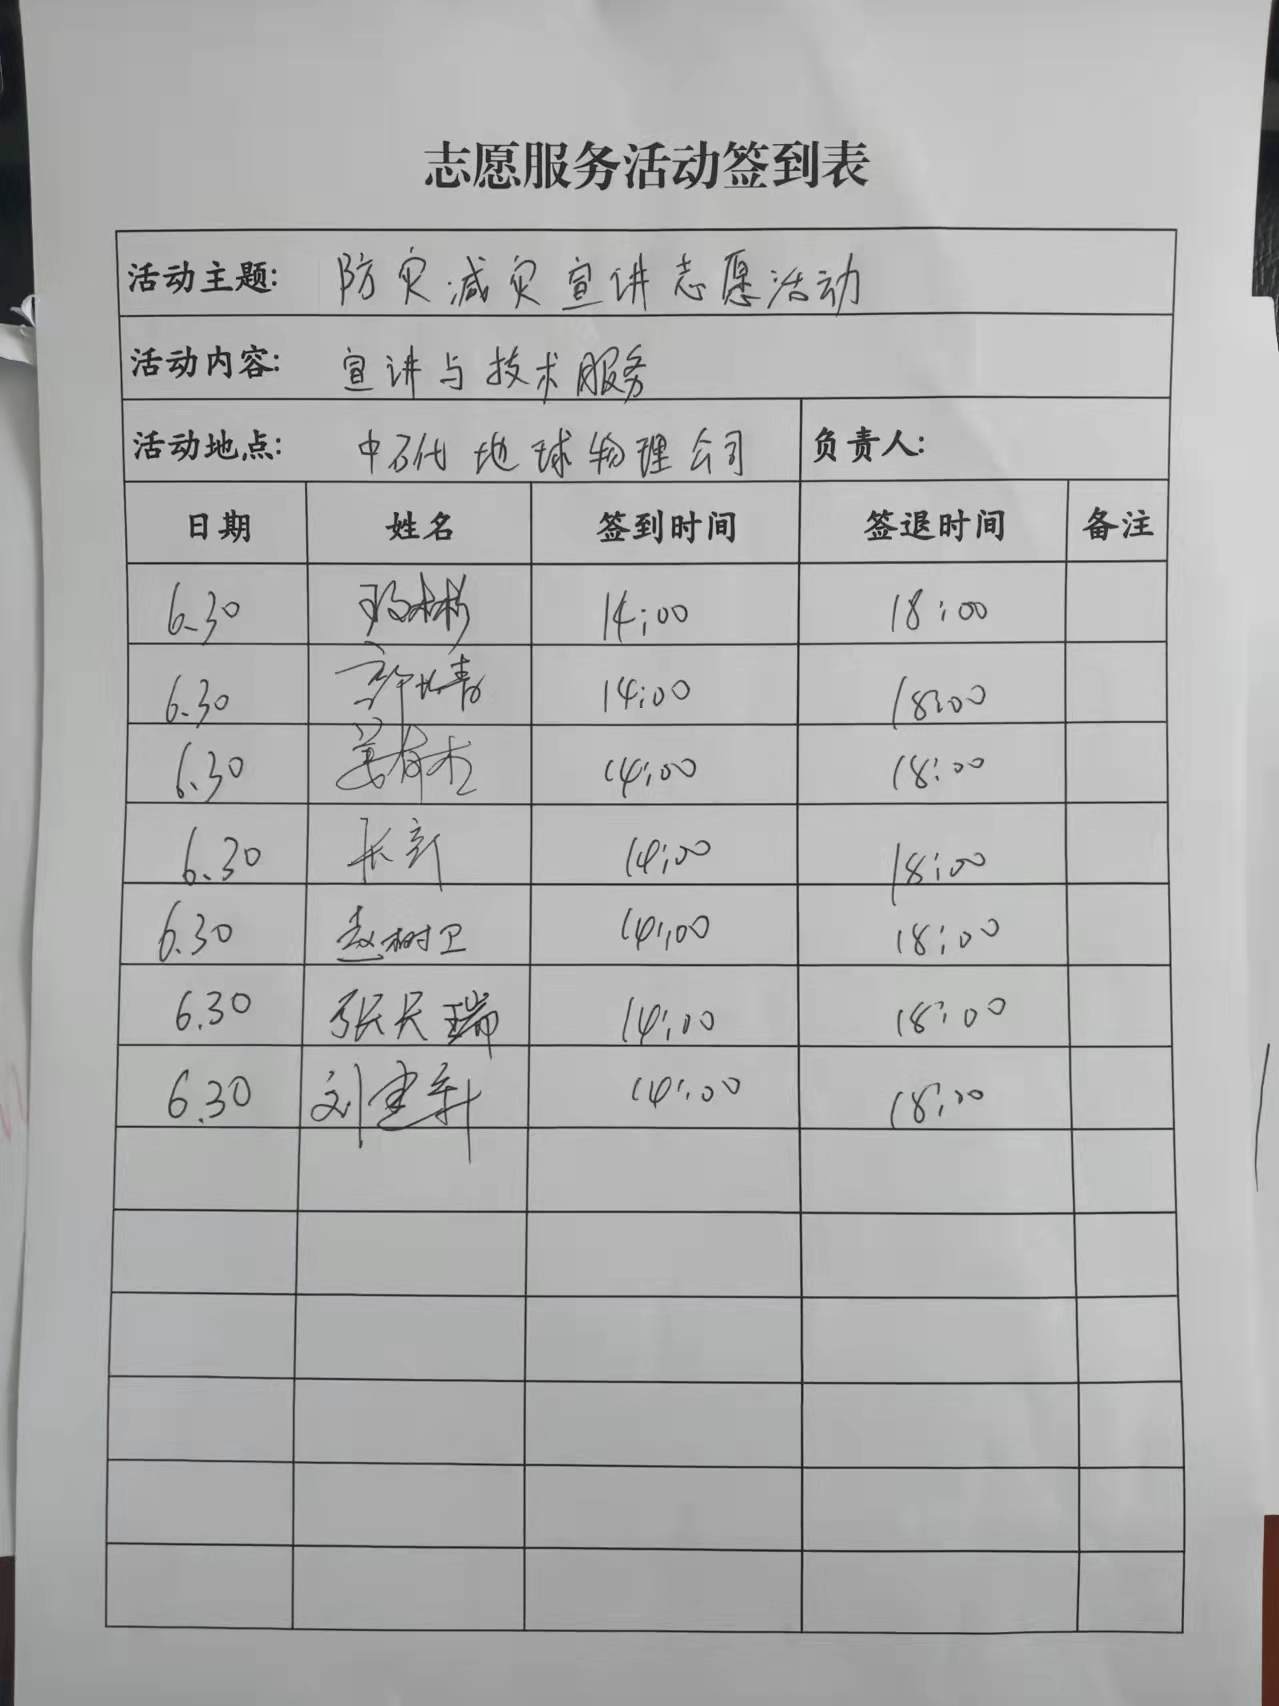 志愿服务活动签到表
活动主题: 防灾减灾宣讲志愿活动
活动内容: 宣讲与技术服务
活动地点: 中石化地球物理公司 负责人:
日期 姓名 签到时间 签退时间 备注
6.30 14:00 18:00
6.30 14:00 18:00
6.30 14:00 18:00
6.30 14:00 18:00
6.30 赵树卫 14:00 18:00
6.30 张天瑞 14:00 18:00
6.30 刘建轩 14:00 18:00